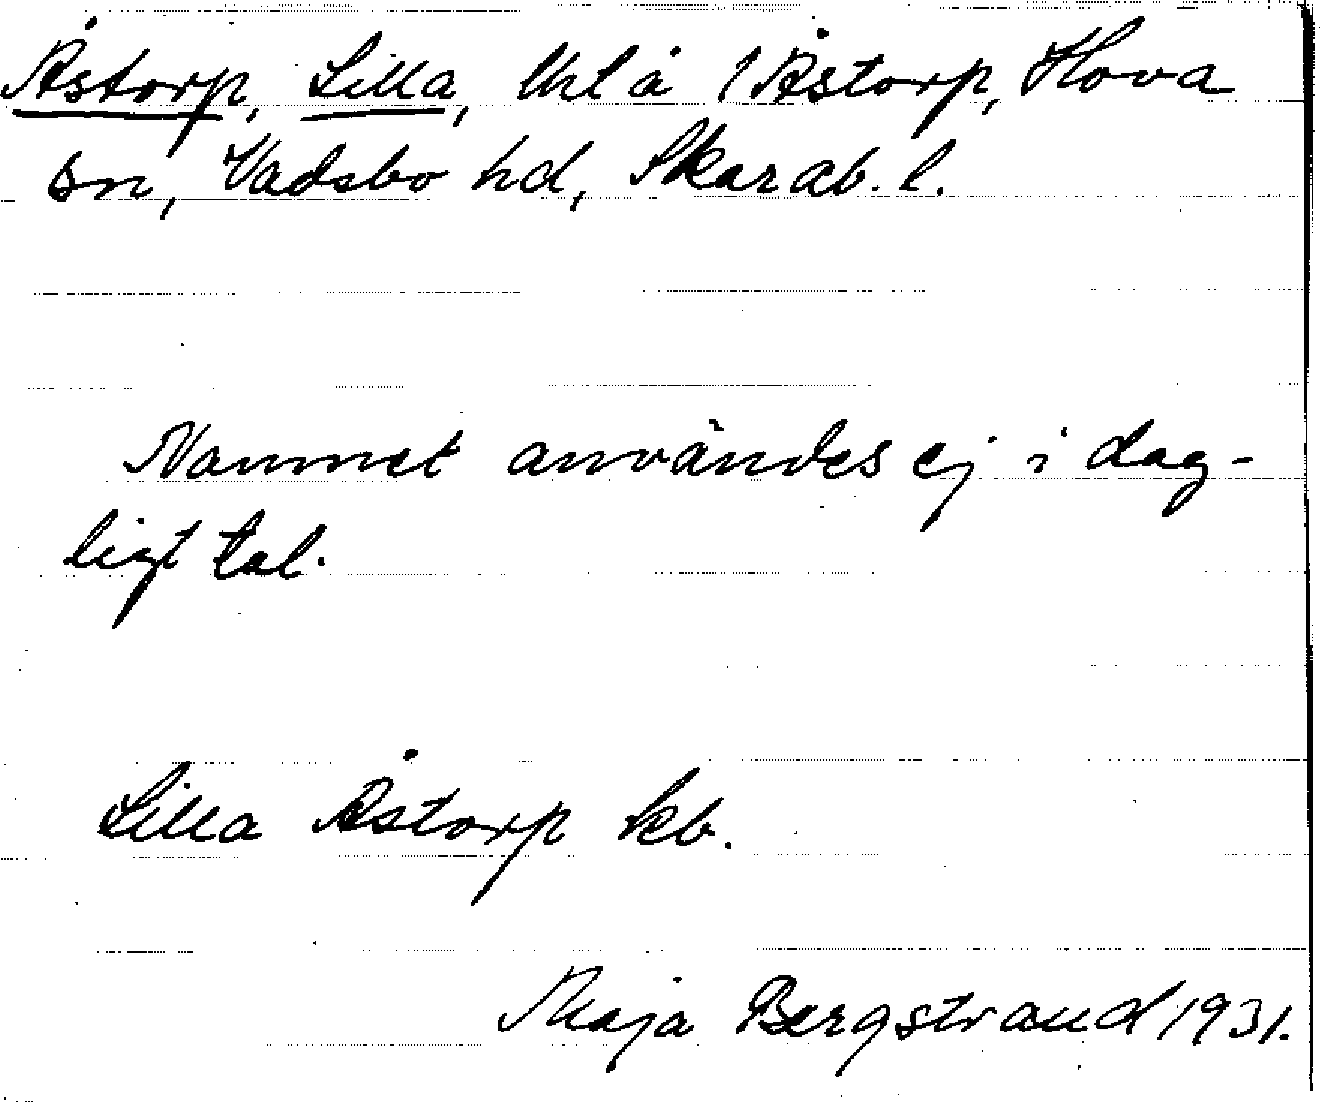 Åstorp, Lilla, lht å 1 Åstorp, Hova
sn, Vadsbo hd, Skarab. l.
Namnet användes ej i dag-
ligt tal.
Lilla Åstorp kb.
Maja Bergstrand 1931.